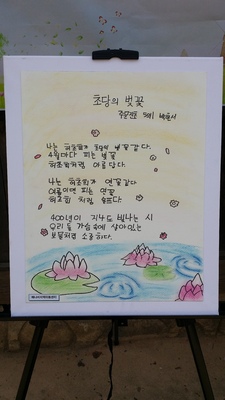 초당의 벚꽃
나는 허초희가 초당의 벚꽃같다.
4월마다 피는 벚꽃
허초희처럼 아름답다.
나는 허초희가 연꽃같다
여름이면 피는 연꽃
허초희 처럼
400년이 지나도 빛나는 시
우리들 가슴속에 살아있는
보물처럼 소중하다.